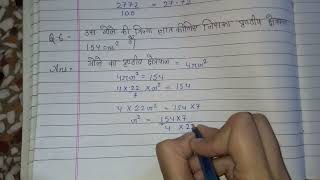 2772 = 27.72
100
Q-6 = उस गोले की त्रिज्या ज्ञात कीजिए जिसका पृष्ठीय क्षेत्रफल
154 cm² है|
Ans:- गोले का पृष्ठीय क्षेत्रफल = 4πr²
4πr² = 154
4 × 22/7 × r² = 154
4 × 22r² = 154 × 7
r² = 154 × 7
4 × 22